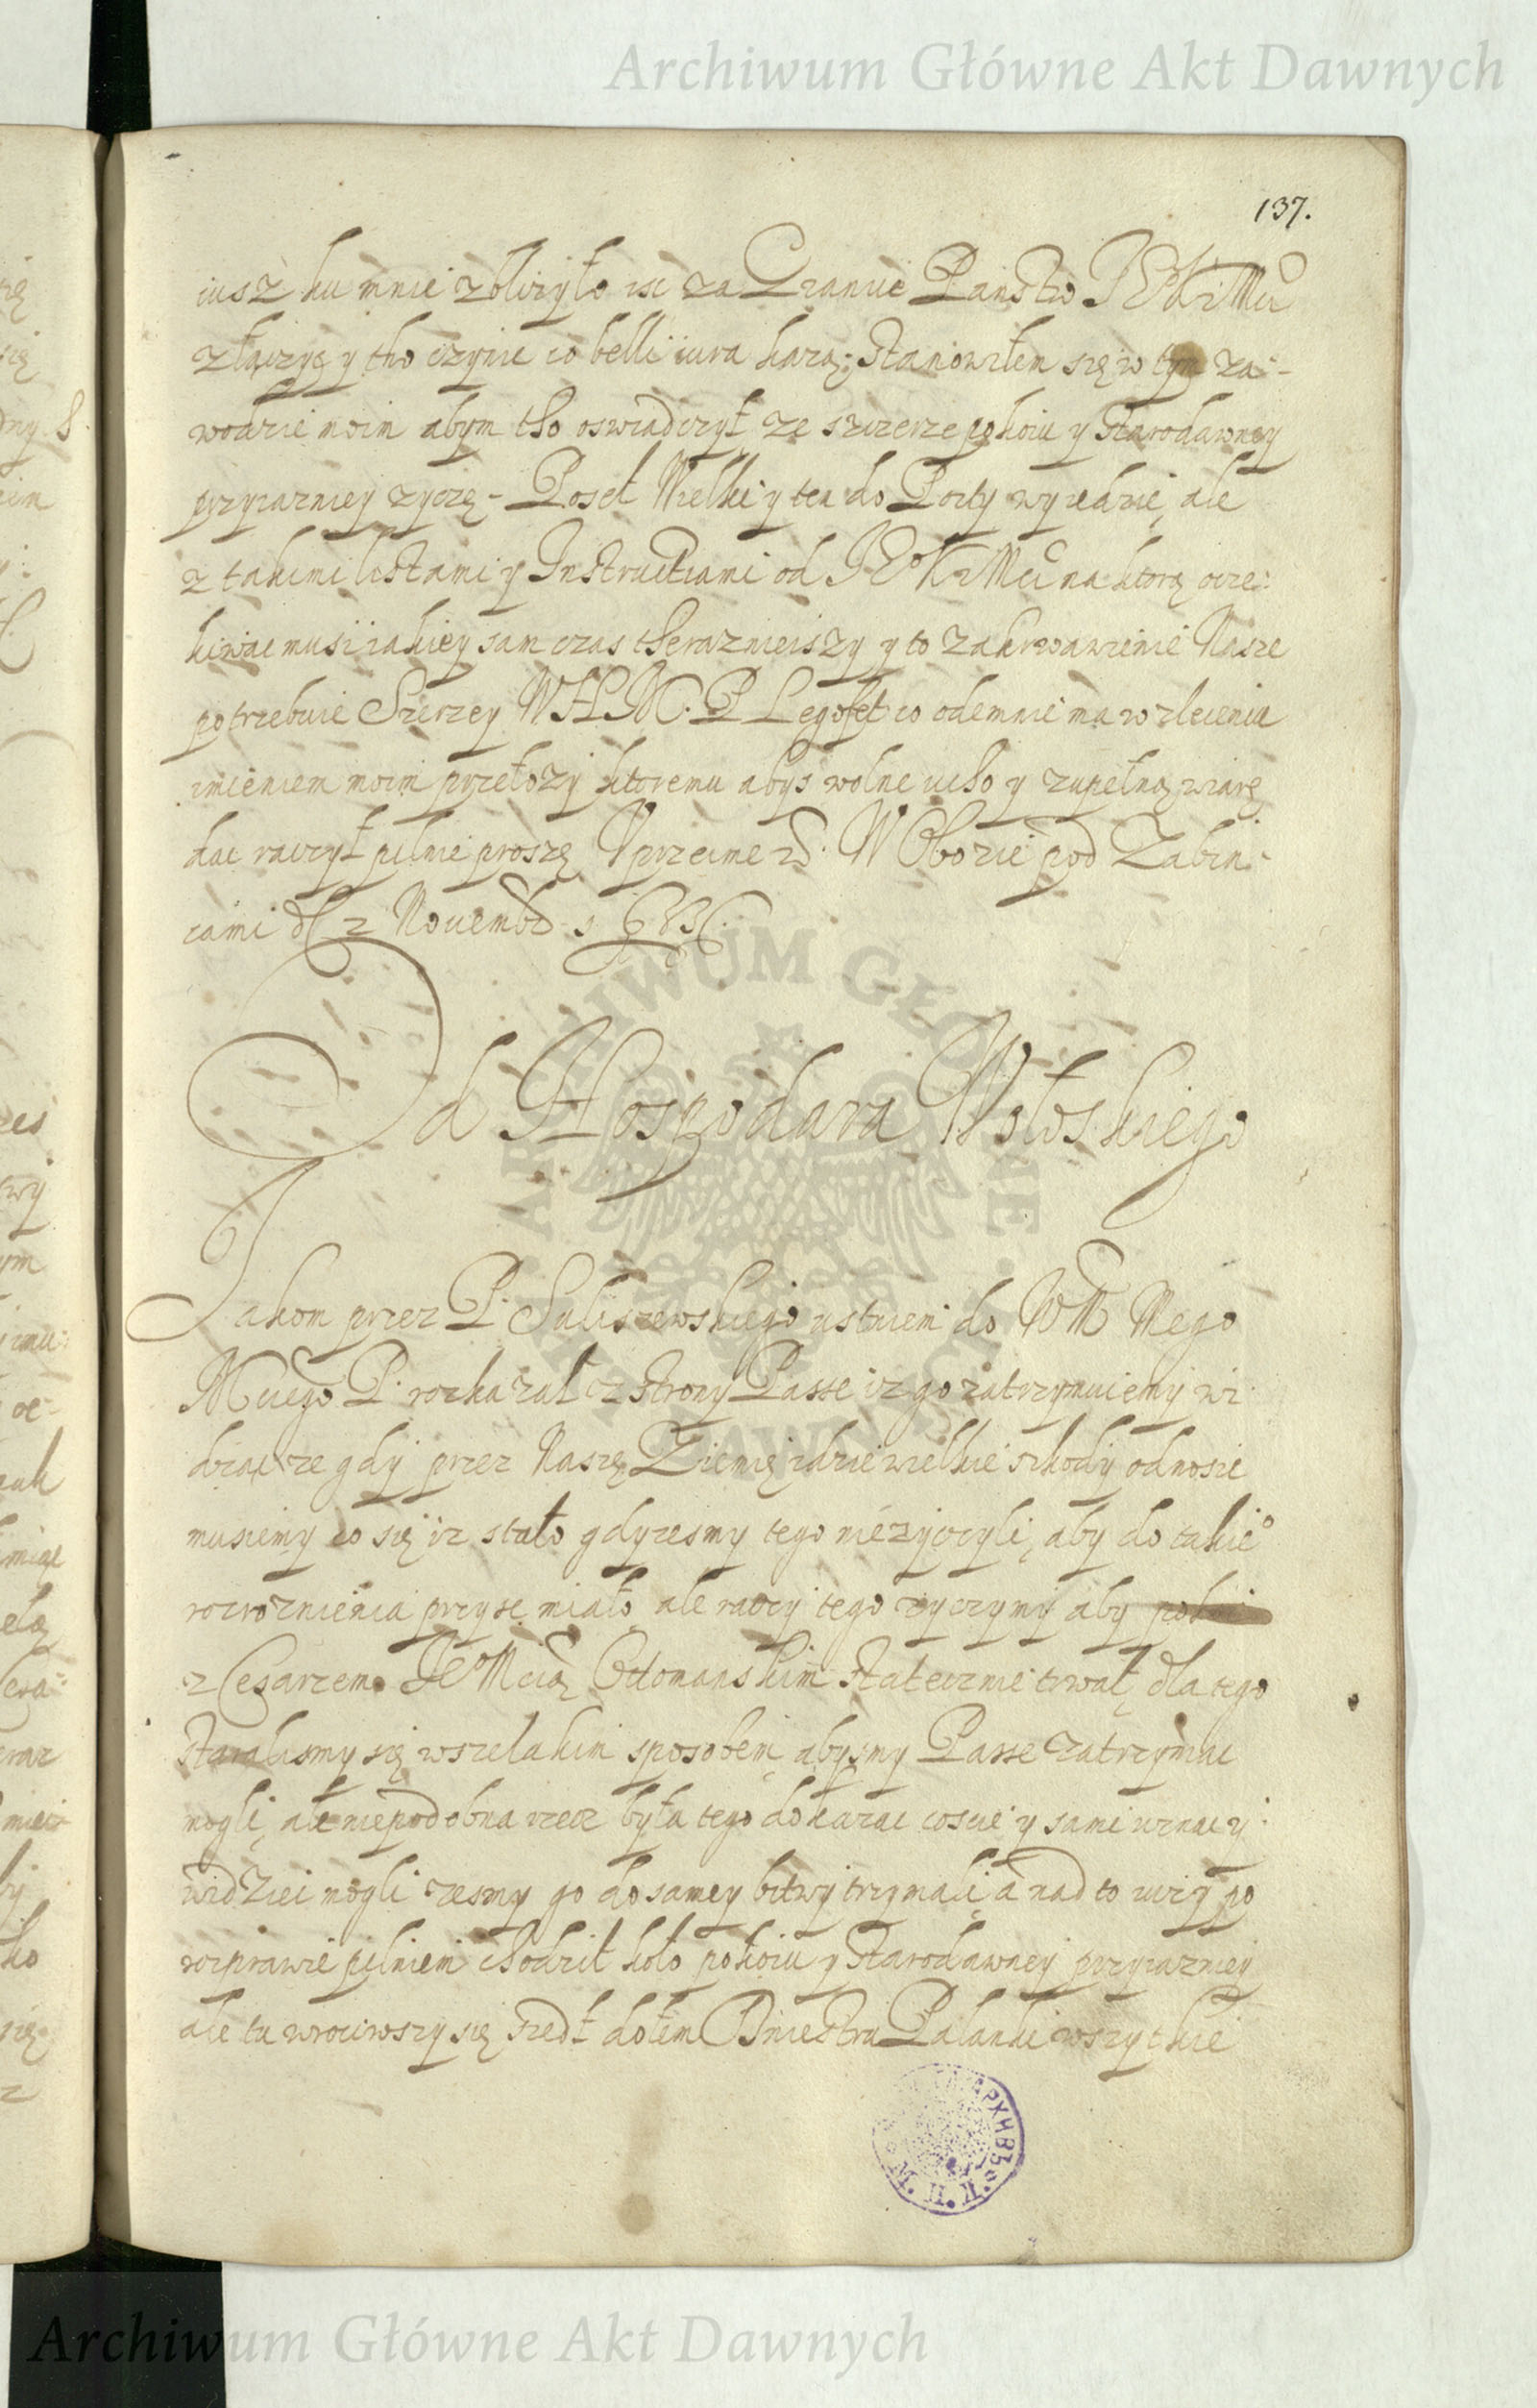 Archiwum Główne Akt Dawnych
137.
iusz ku mnie zbliżyło isc za Granice Państw JEo Kr Mci
złączyc y tho czynic co belli iura każą; stanowiłem się w tym za-
wodzie moim abym tho oswiadczył ze szczerze pokoiu y starodawney
przyiazniey zyczę - Poseł Wielki y ten do Porty wyiedzie, ale
z takimi listami y Instructiami od JEo Kr Mci na ktorą ocze-
kiwac musi iakiey sam czas therazniejszy y to zakrwawienie Nasze
potrzebuie Szerzey WHM. P Legofet co odemnie ma w zleceniu
imieniem moim przełozy ktoremu abys wolne ucho y zupełną wiarę
dac raczył pilnie proszę Vprzeime W Obozie pod Zabin-
cami d 2 Nouemb
Od Hospodara Wołoskiego
Jakom przez P. Suliszewskiego ustniem do WM Mego
Mciego P. rozkazał z strony Passe iz go zatrzymuiemy wi-
dząc ze gdy przez Naszę Ziemię idzie wielkie szkody odnosic
musiemy co się iz stało gdyzesmy tego nie zyczyli, aby do takieo
rozroznienia przyść miało ale raczy tego zyczymy aby pokoi
z Cesarzem JeoMcią Ottomanskim statecznie trwał, dla tego
staralismy się wszelakim sposobem abysmy Passe zatrzymac
mogli, ale niepodobna rzecz była tego dokazac coscie y sami uznac y
widziec mogli zesmy go do samey bitwy trzymali, a nad to iuz y po
rozprawie pilniem chodził koło pokoiu y starodawney przyiazniey
ale tu wrociwszy się szedł dołem Dniestru Palanki wszytkie
Archiwum Główne Akt Dawnych